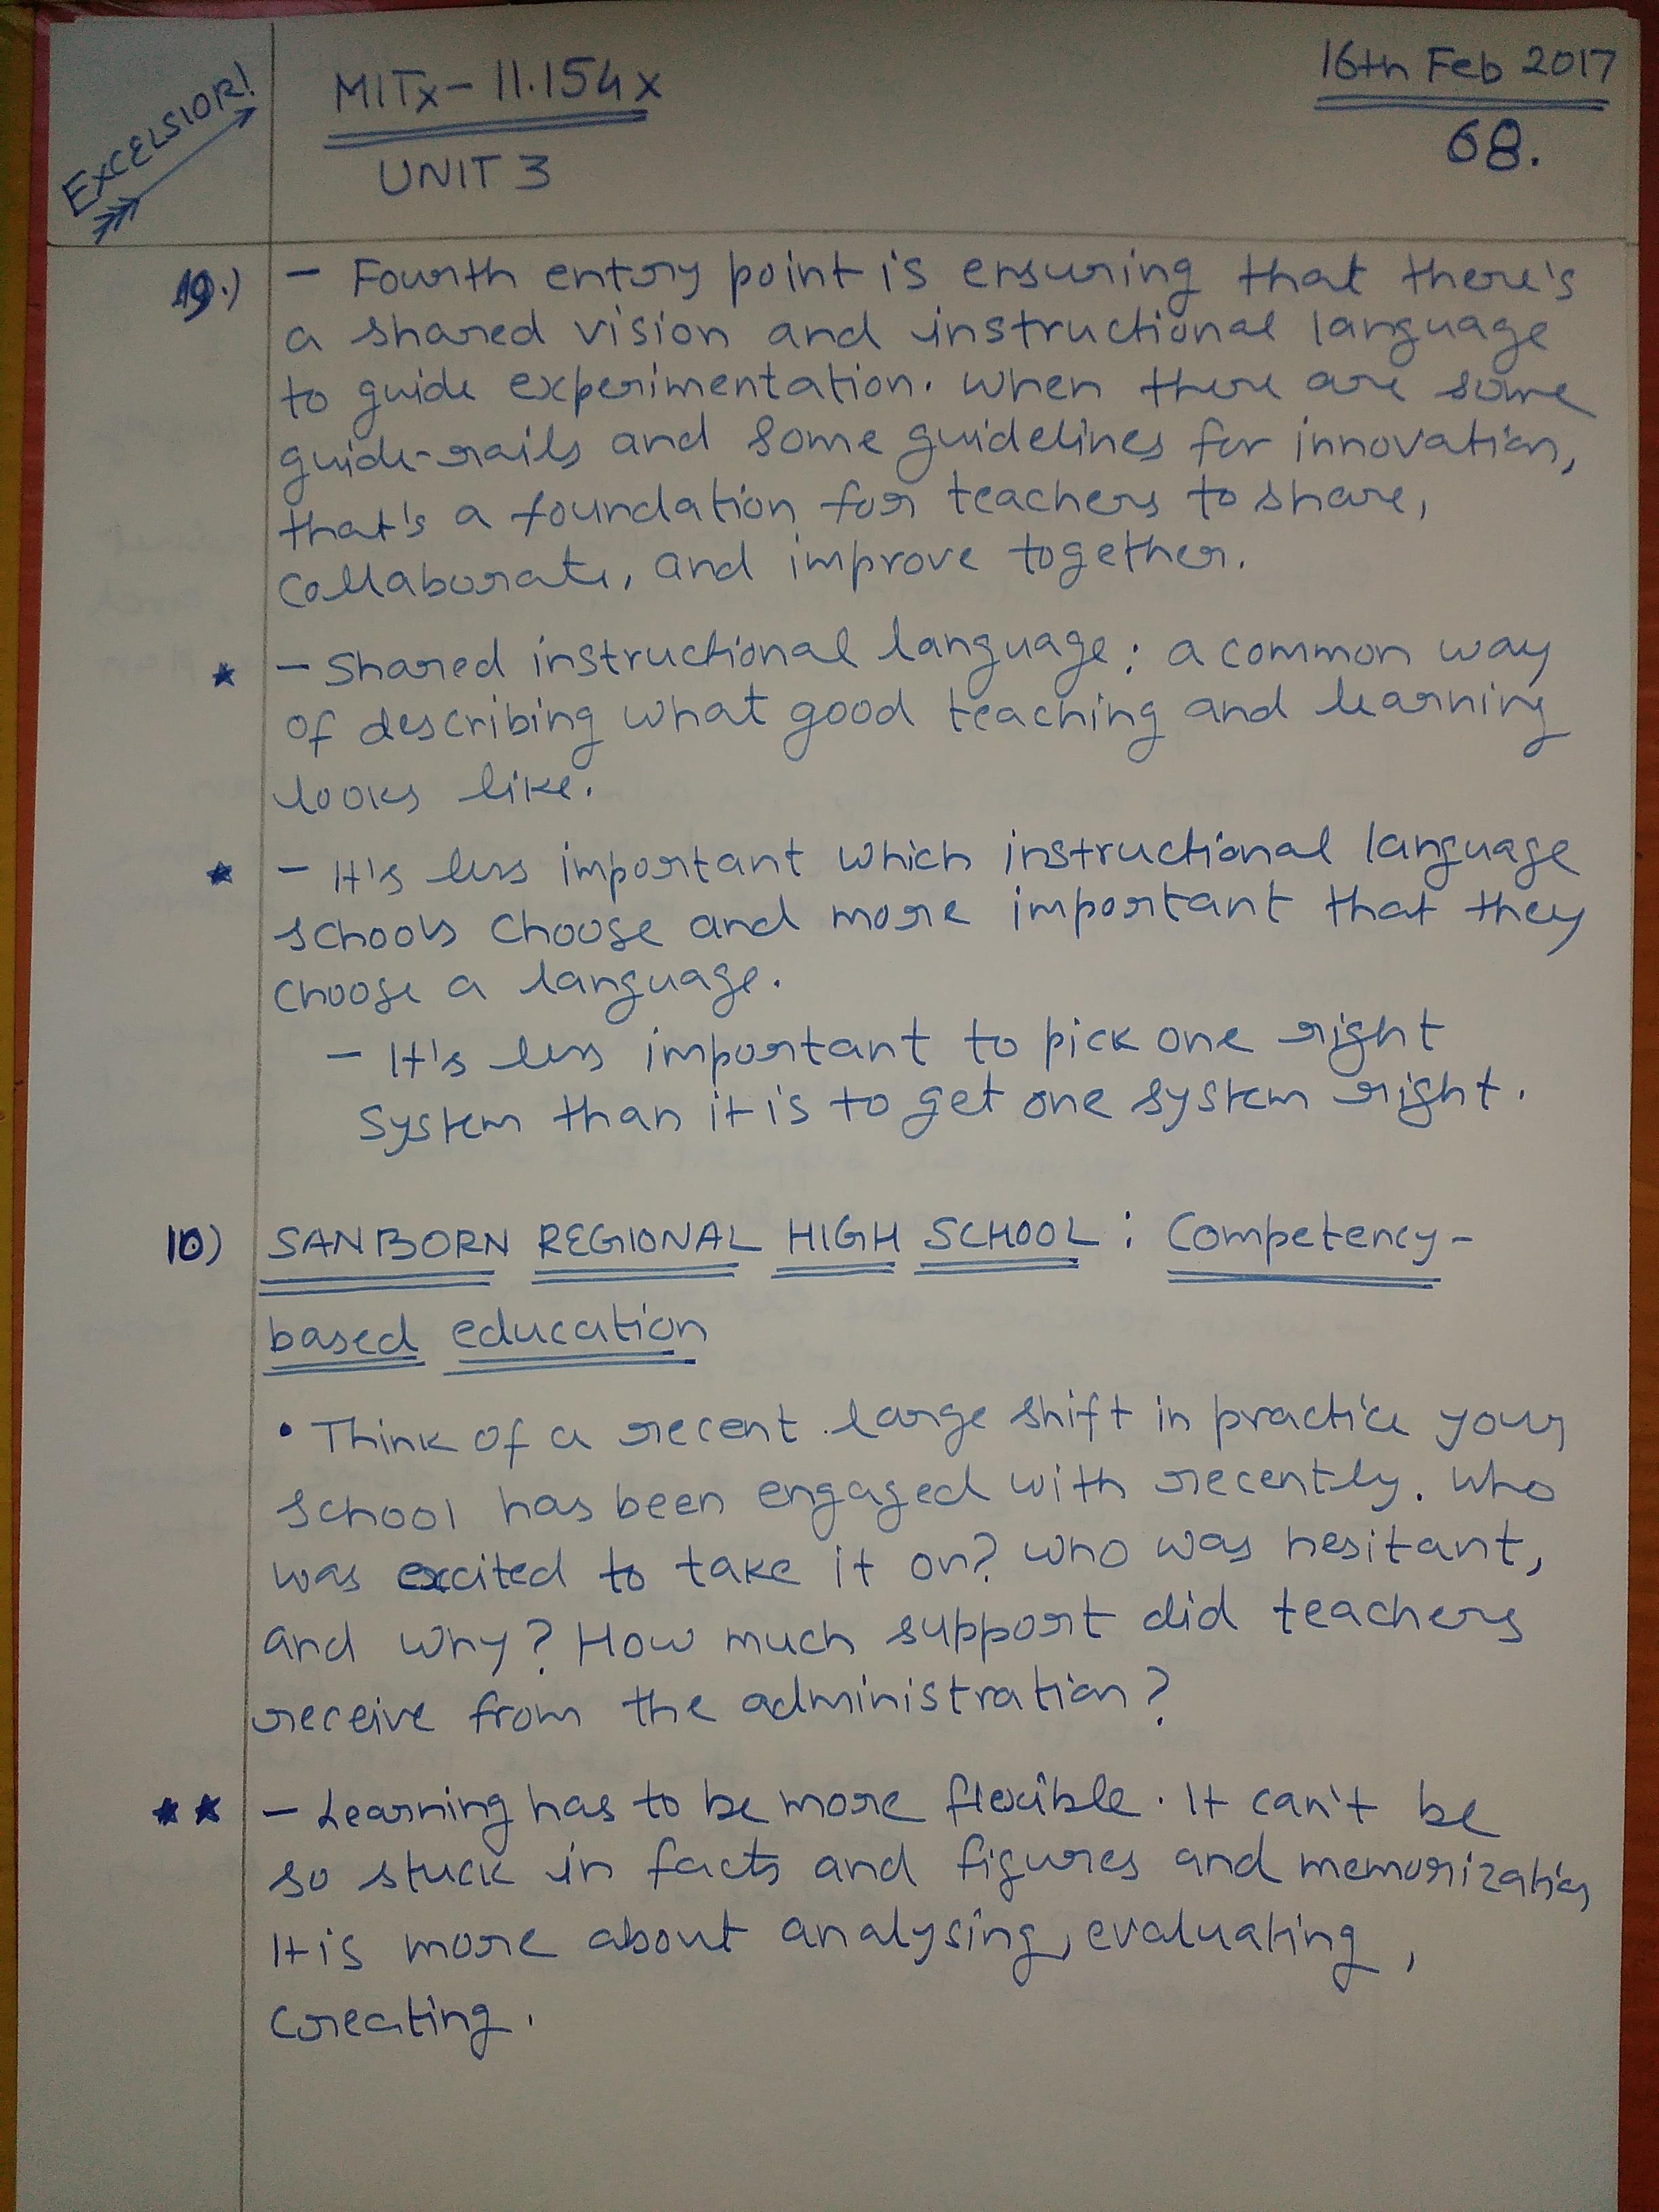 EXCELSIOR!
MITx - 11.154x
UNIT 3
16th Feb 2017
68.
19.) - Fourth entry point is ensuring that there's
a shared vision and instructional language
to guide experimentation. When there are some
guide-rails and some guidelines for innovation,
that's a foundation for teachers to share,
collaborate, and improve together.
★ - Shared instructional language: a common way
of describing what good teaching and learning
looks like.
★ - It's less important which instructional language
schools choose and more important that they
choose a language.
- It's less important to pick one right
system than it is to get one system right.
10) SANBORN REGIONAL HIGH SCHOOL : Competency-
based education
• Think of a recent large shift in practice your
school has been engaged with recently. Who
was excited to take it on? Who was hesitant,
and why? How much support did teachers
receive from the administration?
★★ - Learning has to be more flexible. It can't be
so stuck in facts and figures and memorization
It is more about analysing, evaluating,
creating.